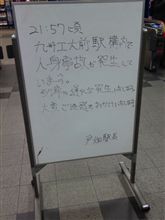 21:57頃
九州工大前駅構内で
人身事故が発生して
います。
列車の遅れが発生し
大変ご迷惑をおかけいたします
戸畑駅長